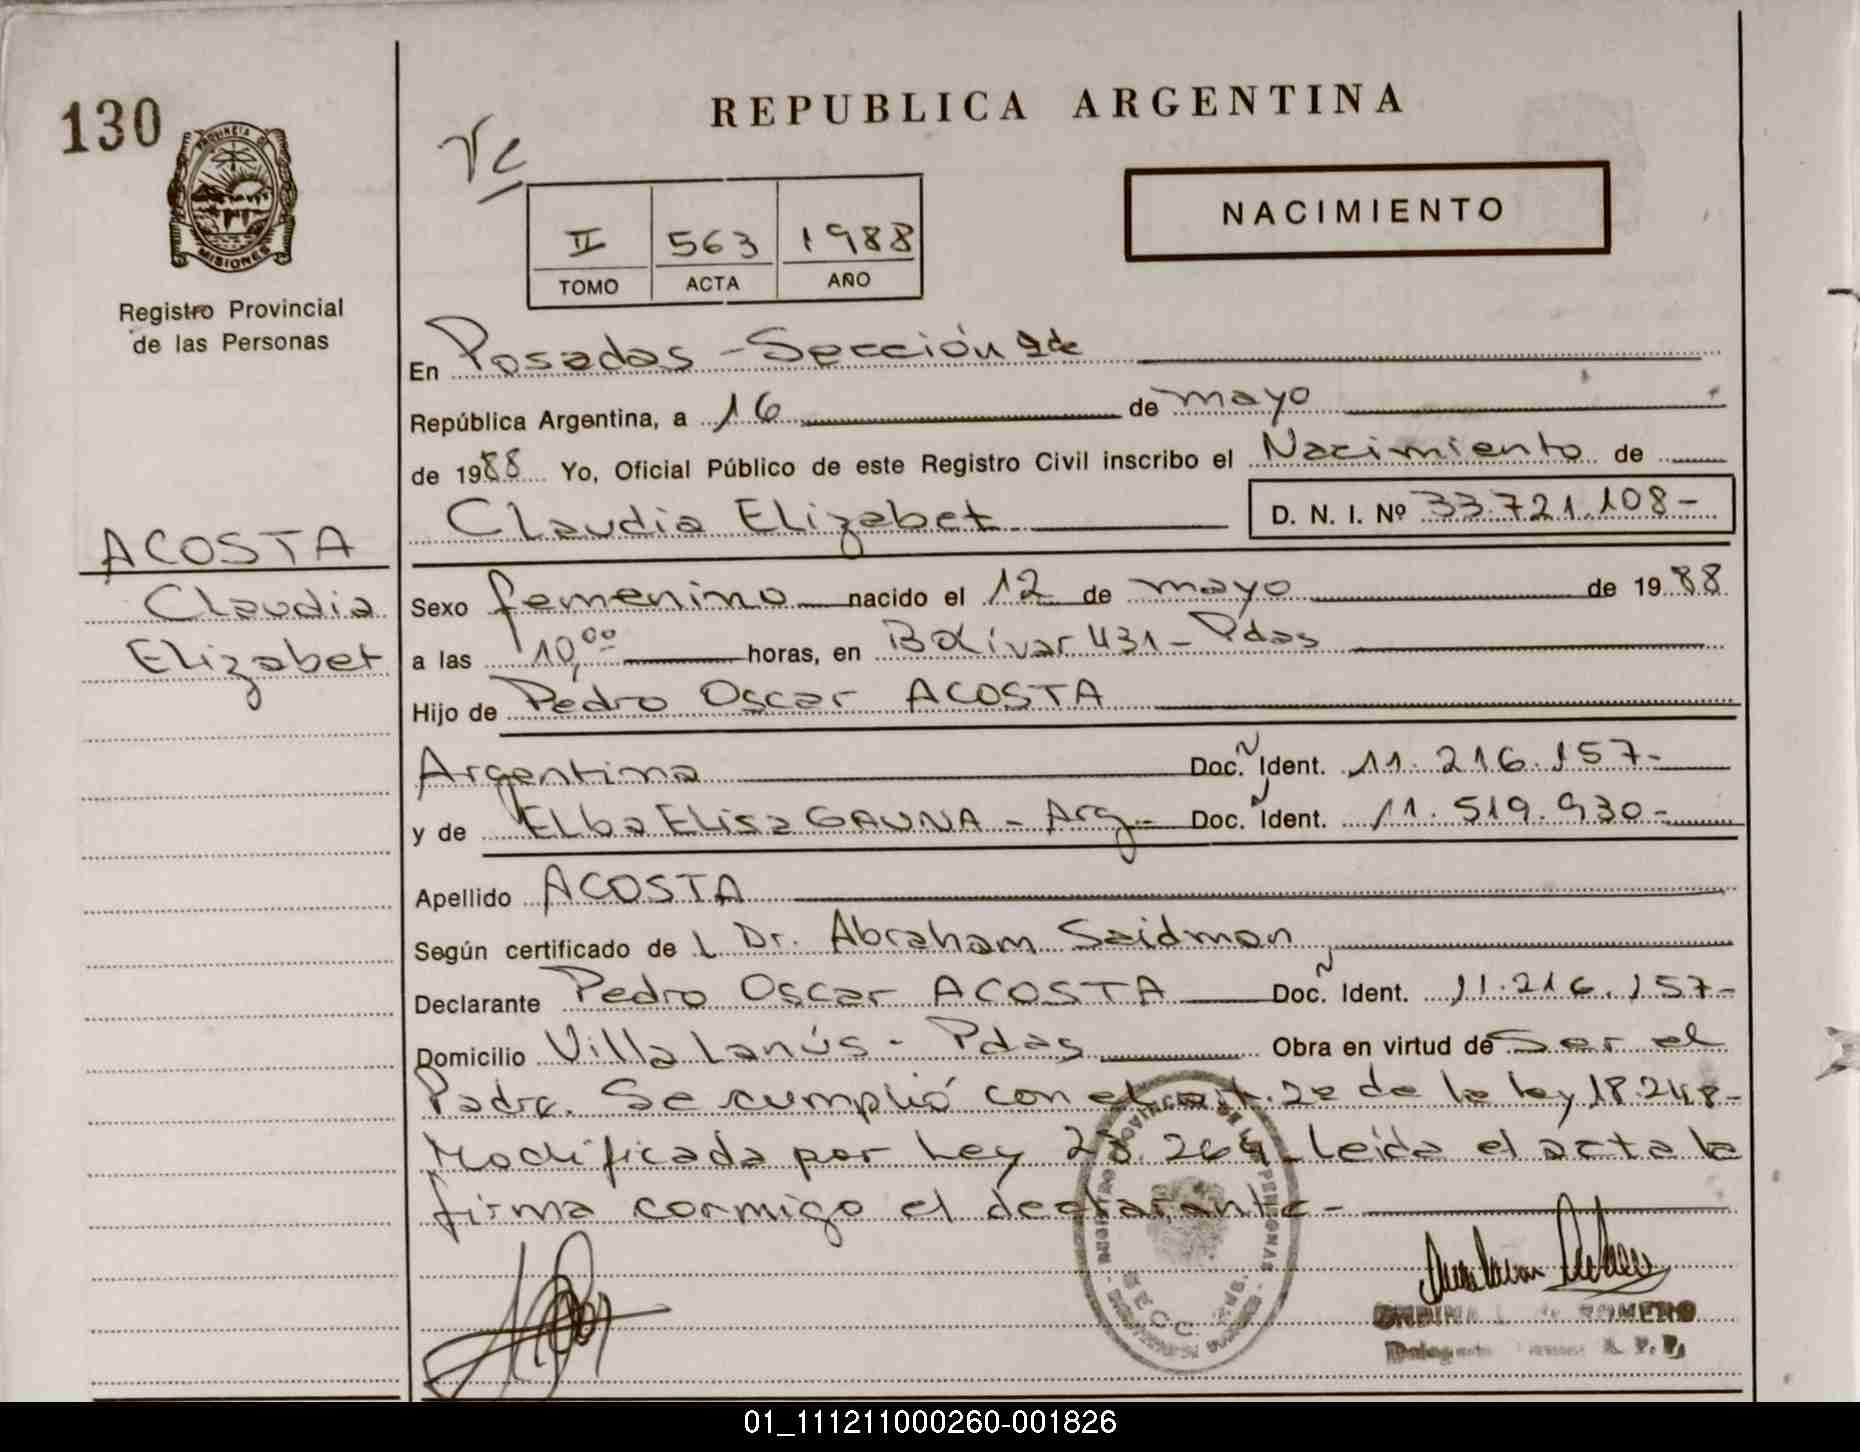 130
REPUBLICA ARGENTINA
PROVINCIA DE
MISIONES
Registro Provincial
de las Personas
NACIMIENTO
II 563 1988
TOMO ACTA AÑO
En Posadas - Sección
República Argentina, a 16 de mayo
de 1988 Yo, Oficial Público de este Registro Civil inscribo el Nacimiento de
Claudia Elizabet D. N. I. Nº 33.721.108-
ACOSTA
Claudia
Elizabet
Sexo femenino nacido el 12 de mayo de 1988
a las 10,00 horas, en Bolívar 431 - Pdas
Hijo de Pedro Oscar ACOSTA
Argentino Doc. Ident. 11.216.157-
y de Elba Elisa GAUNA - Arg.- Doc. Ident. 11.519.930-
Apellido ACOSTA
Según certificado de l Dr. Abraham Saidman
Declarante Pedro Oscar ACOSTA Doc. Ident. 11.216.157-
Domicilio Villa Lanús - Pdas Obra en virtud de Ser el
Padre. Se cumplió con el art. 2º de la ley 18.248-
Modificada por Ley 23.264 - Leída el acta la
firma conmigo el declarante -
SECC.
ROMERO
01_111211000260-001826